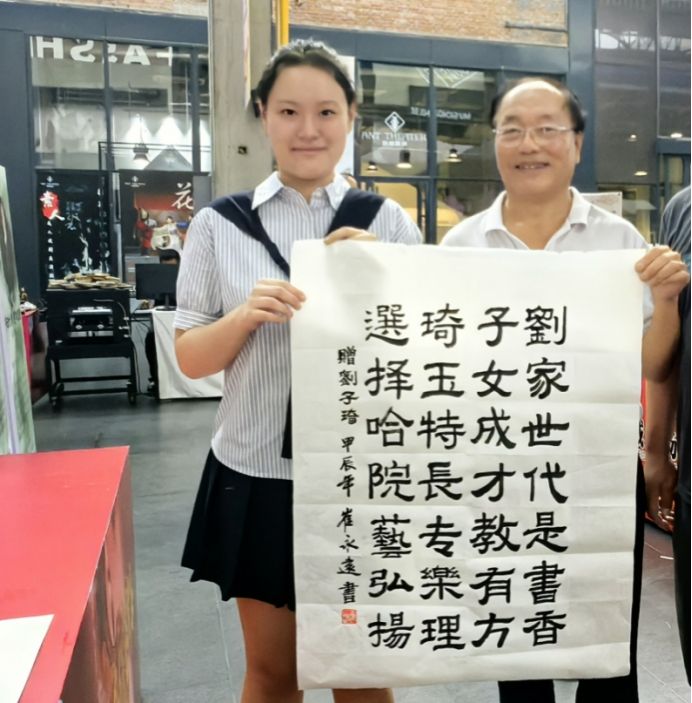 劉家世代是書香
子女成才教有方
琦玉特長专樂理
選择哈院藝弘揚
贈劉子琦 甲辰年 崔永遠書
FASSH
素人
花